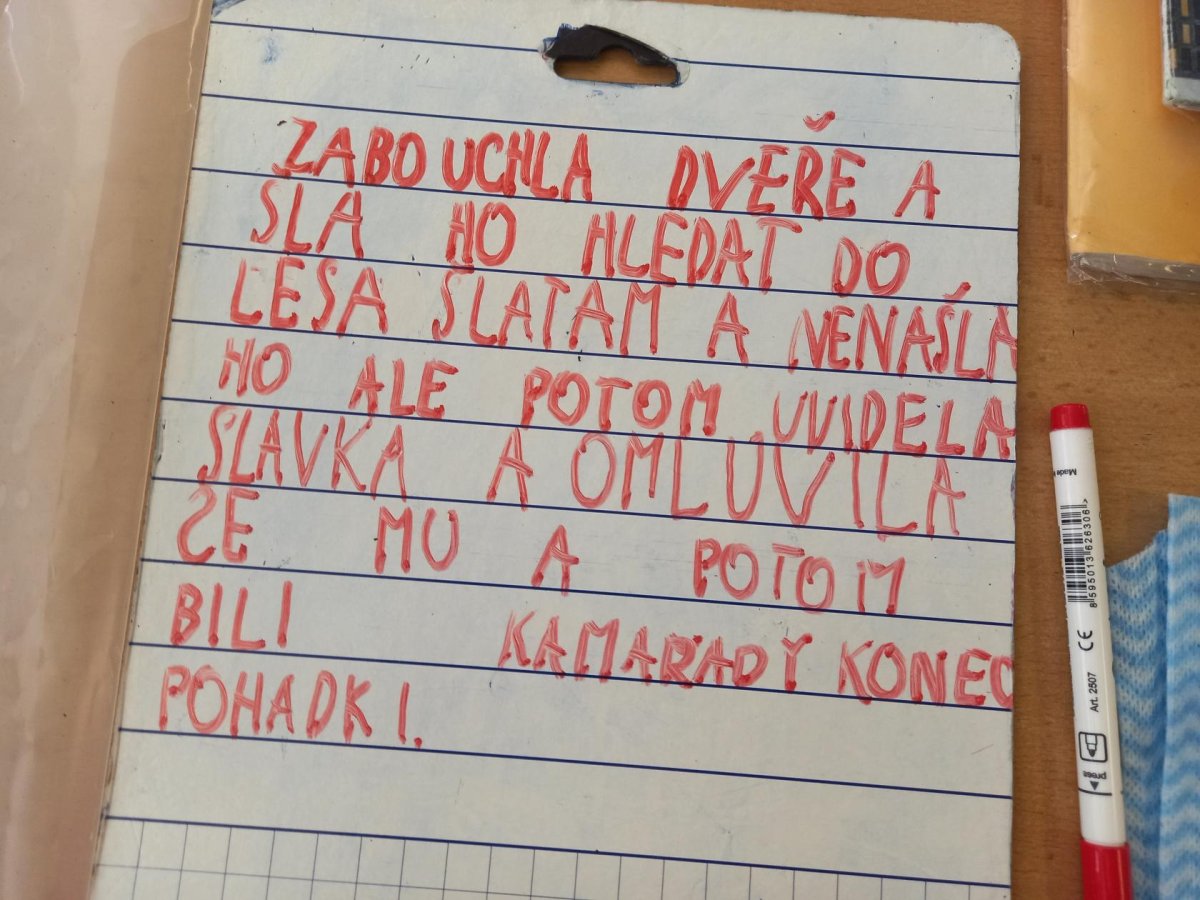 ZABOUCHLA DVEŘE A
SLA HO HLEDAT DO
LESA SLATAM A NENAŠLA
HO ALE POTOM UVIDELA
SLAVKA A OMLUVILA
SE MU A POTOM
BILI KAMARADY KONEC
POHADKI.
Made
8 595013 626306 >
CE
Art. 2507
press